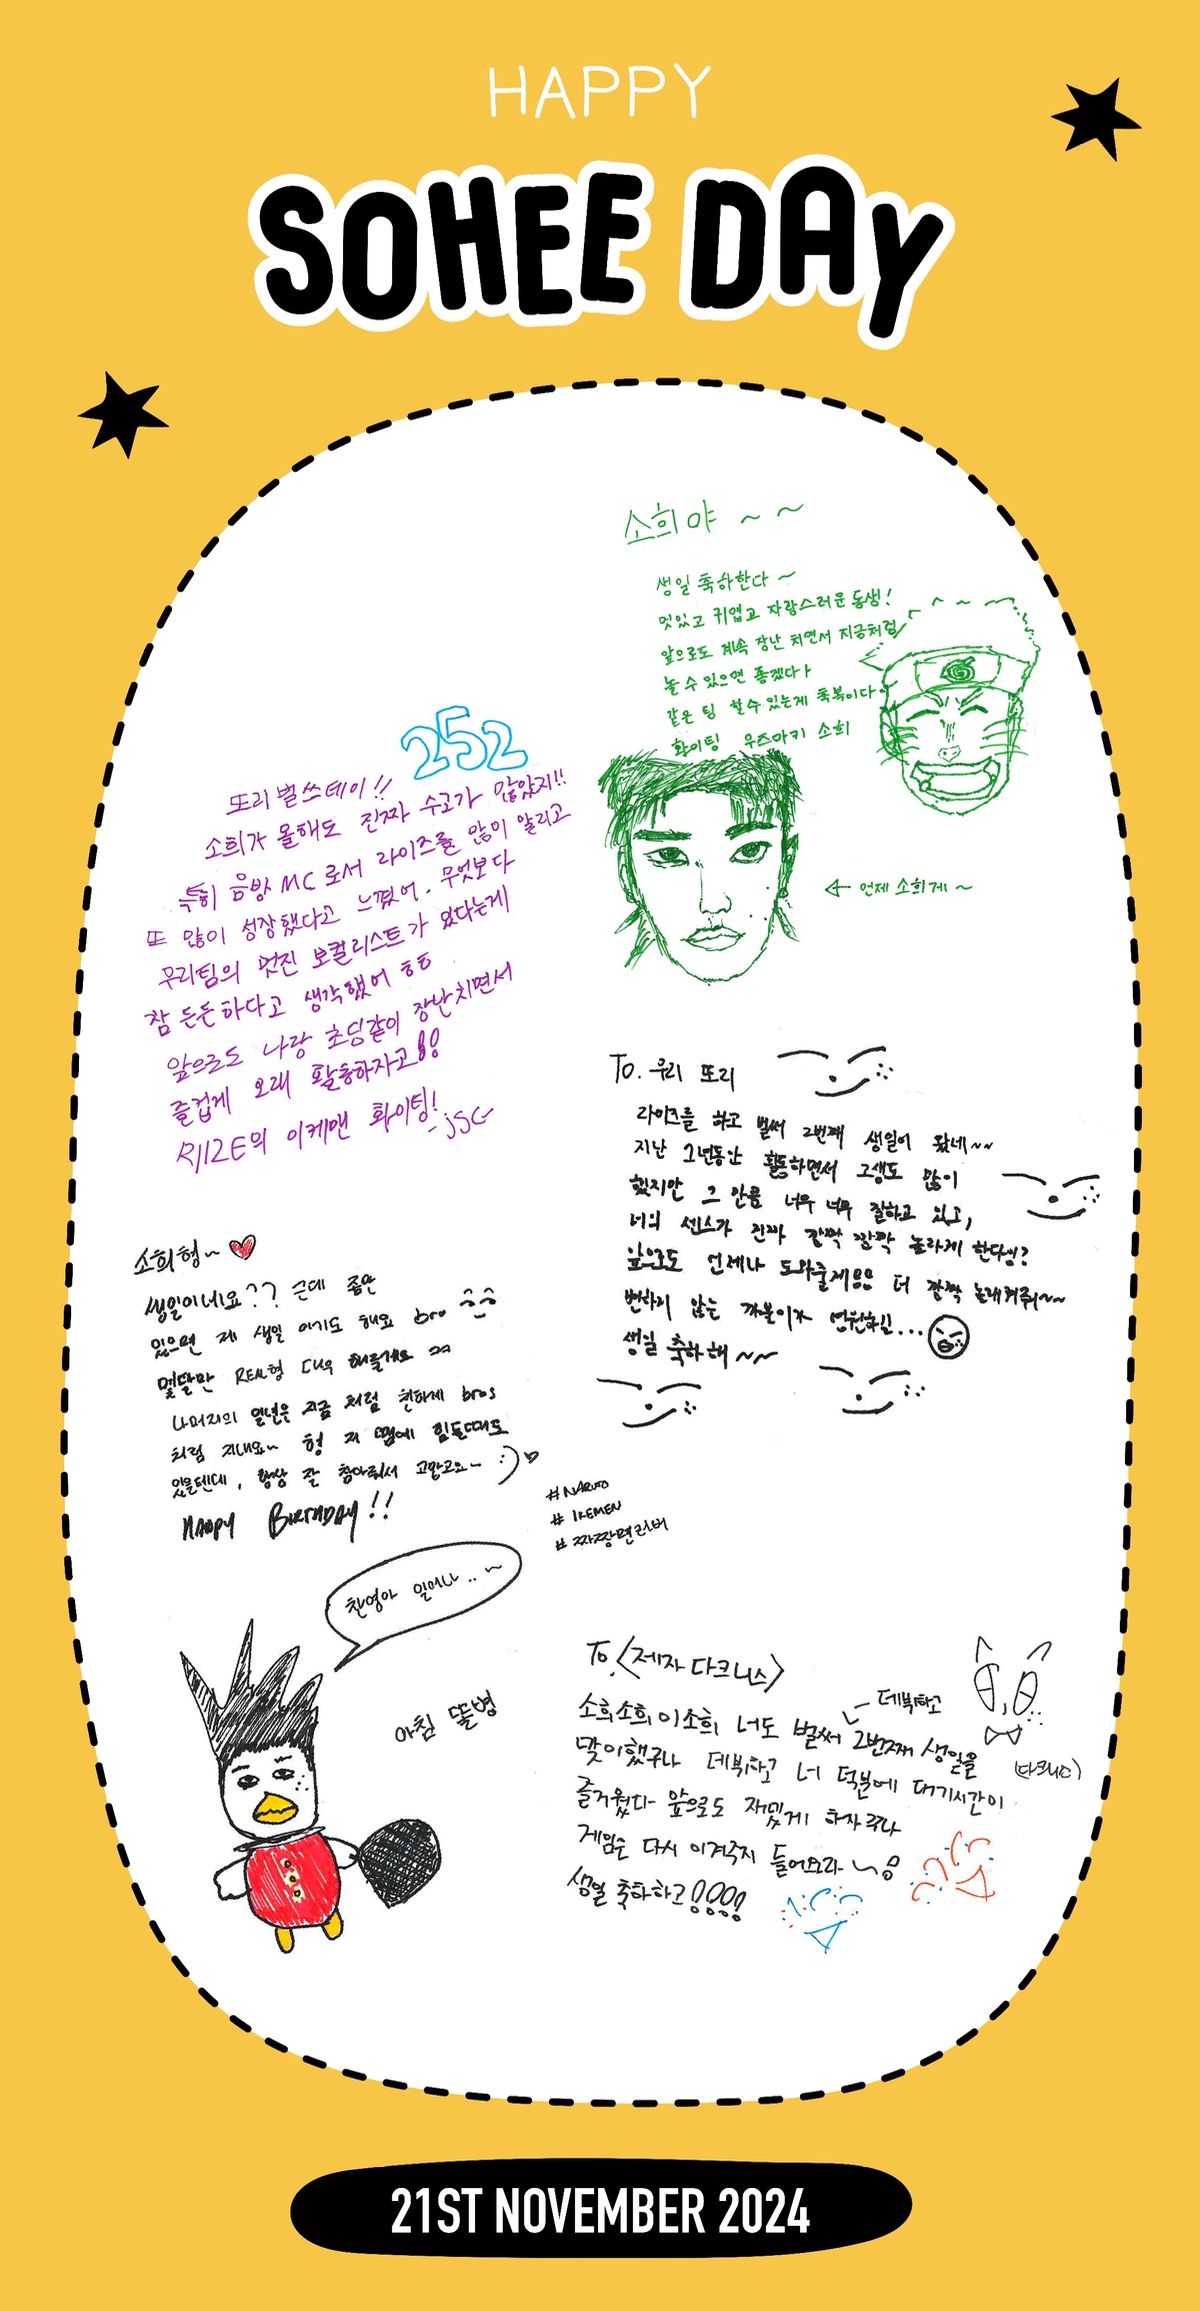 HAPPY
SOHEE DAY
소희야 ~ ~
생일 축하한다 ~
멋있고 귀엽고 자랑스러운 동생!
앞으로도 계속 장난 치면서 지금처럼
놀 수 있으면 좋겠다
같은 팀 할수 있는게 축복이다
화이팅 우즈마키 소희
언제 소희게 ~
252
또리 벌쓰데이!!
소희가 올해도 진짜 수고가 많았지!!
특히 음방 MC로서 라이즈를 많이 알리고
또 많이 성장했다고 느꼈어. 무엇보다
우리팀의 멋진 보컬리스트가 있다는게
참 든든하다고 생각했어 ㅎㅎ
앞으로도 나랑 초딩같이 장난치면서
즐겁게 오래 활동하자고!!
RIIZE의 이케맨 화이팅!
-jSC-
To. 우리 또리
라이즈를 하고 벌써 2번째 생일이 왔네~~
지난 1년동안 활동하면서 고생도 많이
했지만 그 만큼 너무 너무 잘하고 있고,
너의 센스가 진짜 깜짝 깜짝 놀라게 한다잉?
앞으로도 언제나 도와줄게 더 깜짝 놀래켜줘~~
변하지 않는 까불이가 영원하길...
생일 축하해~~
소희형~
생일이네요?? 근데 좀만
있으면 제 생일 이기도 해요 bro
몇달만 REAL형 대우 해줄게요 ㅋㅋ
나머지의 일년은 지금 처럼 친하게 bros
처럼 지내요~ 형 저 땜에 힘들때도
있을텐데, 항상 잘 참아줘서 고맙고요~ :)
HAPPY BIRTHDAY!!
#NARUTO
#IKEMEN
#짜장면러버
찬영아 일어나..~
아침 똘병
To.<제자 다크니스>
소희소희이소희 너도 벌써 2번째 생일을
데뷔하고
맞이했구나 데뷔하고 너 덕분에 대기시간이
(다크니스)
즐거웠다 앞으로도 재밌게 하자꾸나
게임은 다시 이겨주지 들어오라~
생일 축하하고!!!!
21ST NOVEMBER 2024